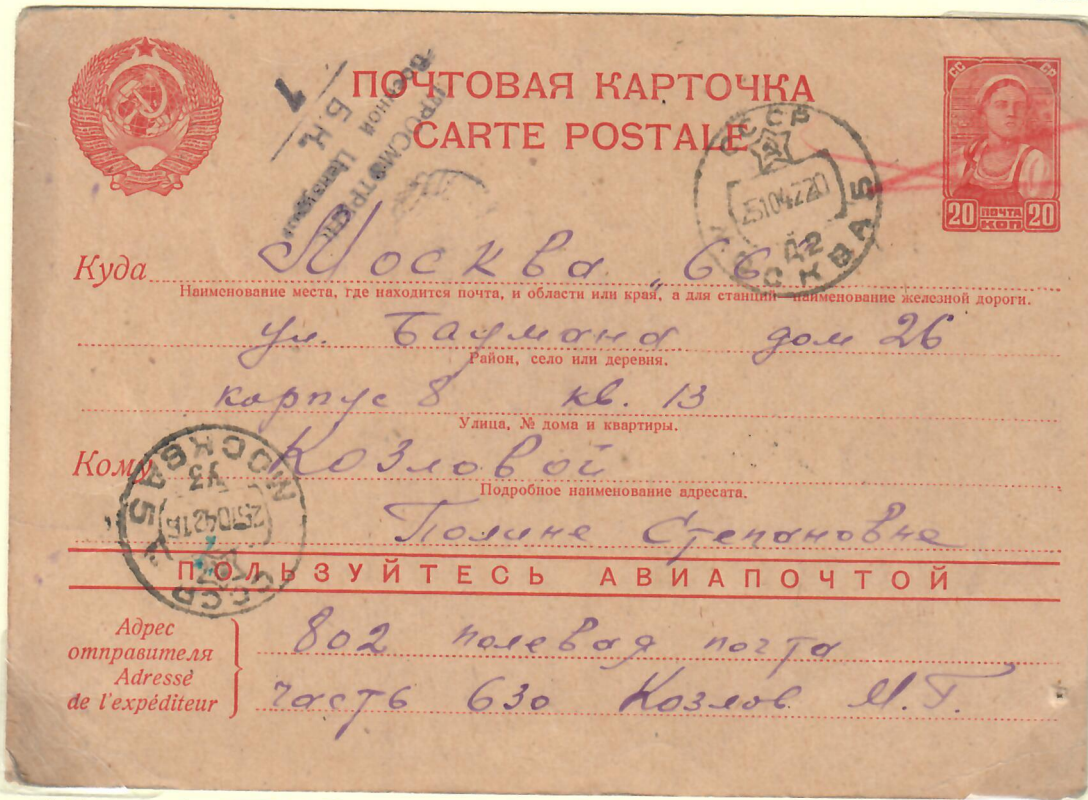 ПОЧТОВАЯ КАРТОЧКА
CARTE POSTALE
СС СР
20 ПОЧТА 20
КОП
ПРОСМОТРЕНО
Военной Цензурой
Б.Н.
7
СССР
25104220
Д2
МОСКВА 5
Куда Москва, 66
Наименование места, где находится почта, и области или края, а для станции наименование железной дороги.
ул. Баумана дом 26
Район, село или деревня.
корпус 8 кв. 13
Улица, № дома и квартиры.
Кому Козловой
Подробное наименование адресата.
Полине Степановне
МОСКВА 5
У3
СССР
ПОЛЬЗУЙТЕСЬ АВИАПОЧТОЙ
Адрес
отправителя
Adressè
de l'expéditeur
802 полевая почта
часть 630 Козлов М.Г.